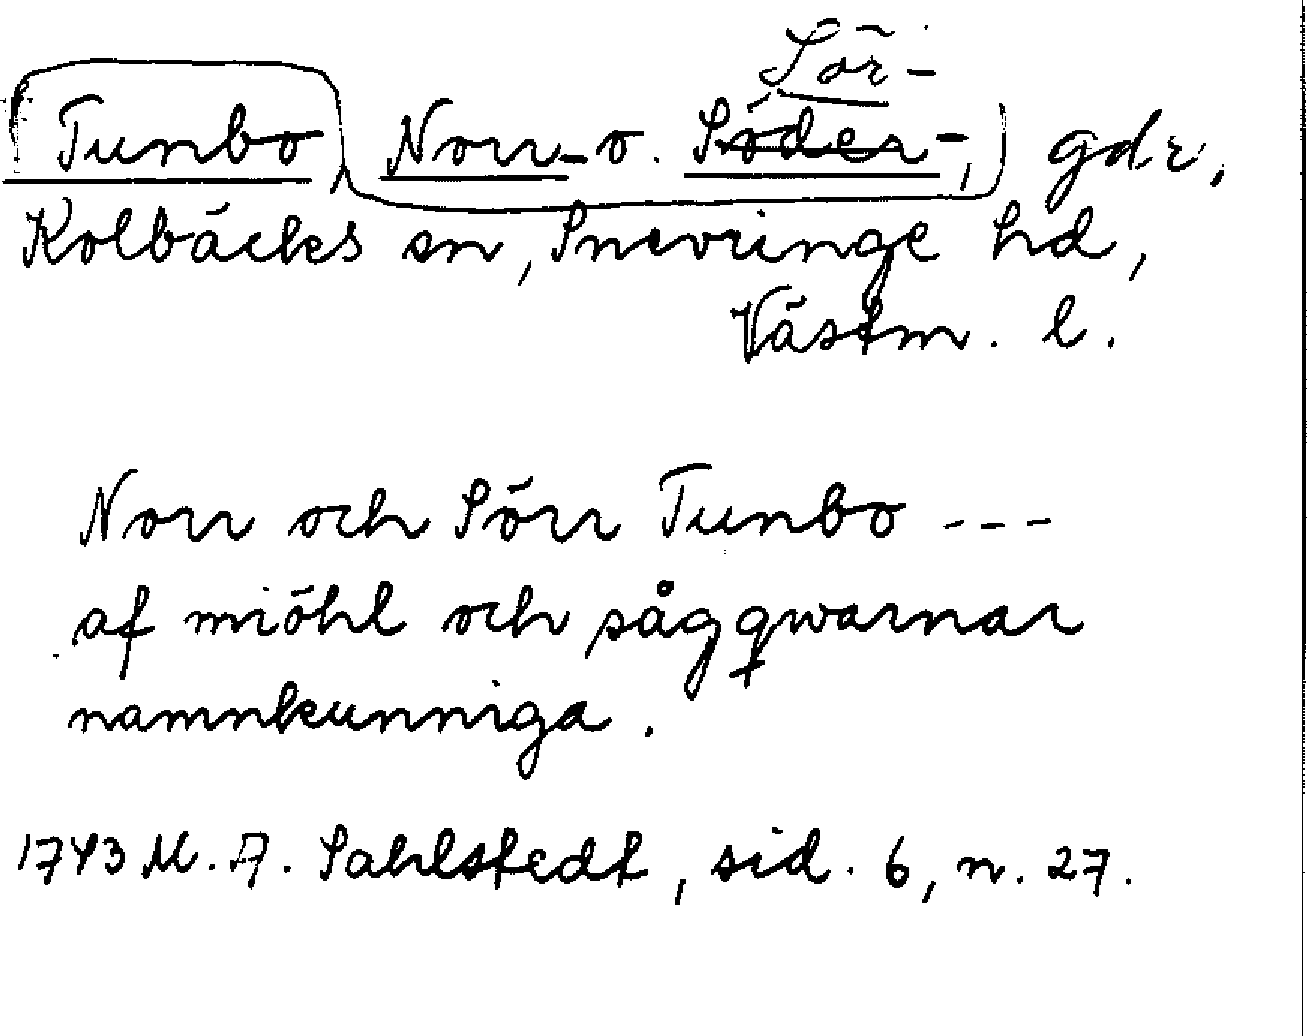 Sör-
Tunbo, Norr- o. Söder-, gdr,
Kolbäcks sn, Snevringe hd,
Västm. l.
Norr och Sörr Tunbo ---
af miöhl och sågqwarnar
namnkunniga.
1743 M. A. Sahlstedt, sid. 6, n. 27.